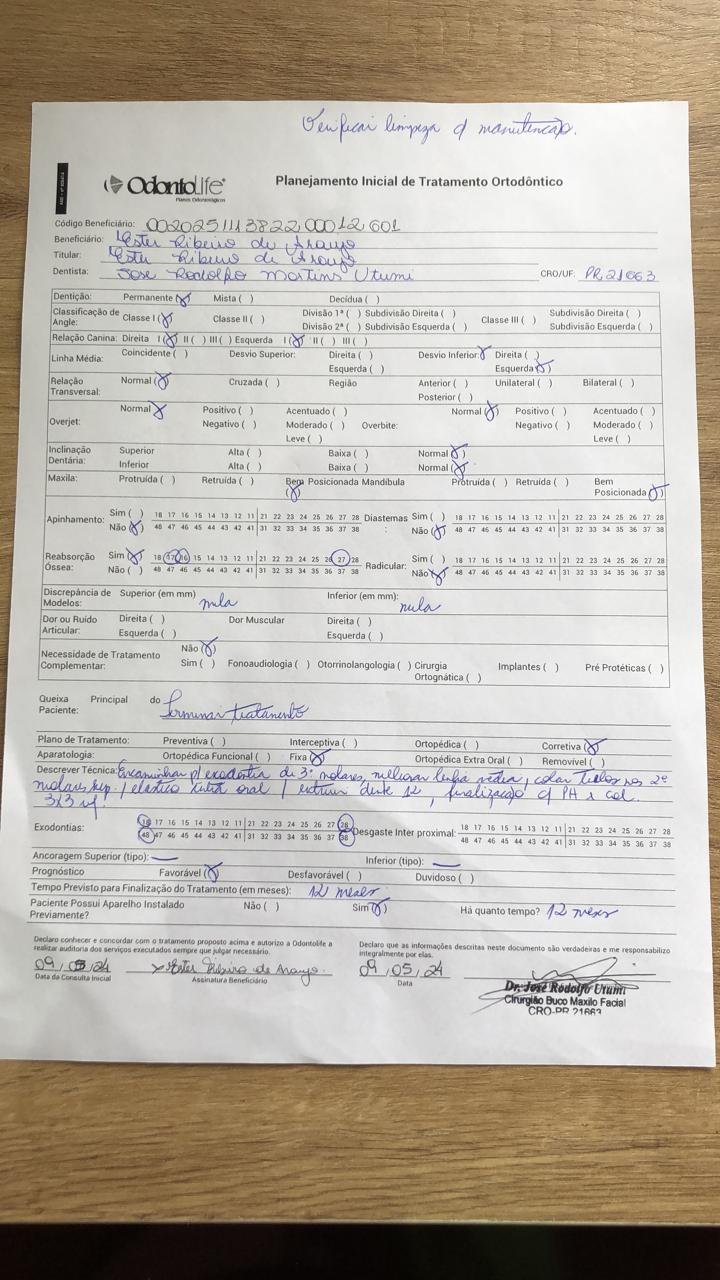 Verificar limpeza c/ manutenção.
OdontoLife
Planos Odontológicos
Planejamento Inicial de Tratamento Ortodôntico
Código Beneficiário: 00202511138220001 2 601
Beneficiário: Ester Ribeiro de Araujo
Titular: Ester Ribeiro de Araujo
Dentista: Jose Rodolfo Martins Utumi CRO/UF: PR 21663
Dentição: Permanente (X) Mista ( ) Decídua ( )
Classificação de Angle: Classe I (X) Classe II ( ) Divisão 1ª ( ) Subdivisão Direita ( ) Classe III ( ) Subdivisão Direita ( )
Divisão 2ª ( ) Subdivisão Esquerda ( ) Subdivisão Esquerda ( )
Relação Canina: Direita I (X) II ( ) III ( ) Esquerda I (X) II ( ) III ( )
Linha Média: Coincidente ( ) Desvio Superior: Direita ( ) Desvio Inferior: X Direita ( )
Esquerda ( ) Esquerda (X)
Relação Transversal: Normal (X) Cruzada ( ) Região Anterior ( ) Unilateral ( ) Bilateral ( )
Posterior ( )
Overjet: Normal (X) Positivo ( ) Acentuado ( ) Overbite: Normal (X) Positivo ( ) Acentuado ( )
Negativo ( ) Moderado ( ) Negativo ( ) Moderado ( )
Leve ( ) Leve ( )
Inclinação Dentária: Superior Alta ( ) Baixa ( ) Normal (X)
Inferior Alta ( ) Baixa ( ) Normal (X)
Maxila: Protruída ( ) Retruída ( ) Bem Posicionada (X) Mandíbula Protruída ( ) Retruída ( ) Bem Posicionada (X)
Apinhamento: Sim ( ) 18 17 16 15 14 13 12 11 21 22 23 24 25 26 27 28 Diastemas: Sim ( ) 18 17 16 15 14 13 12 11 21 22 23 24 25 26 27 28
Não (X) 48 47 46 45 44 43 42 41 31 32 33 34 35 36 37 38 Não (X) 48 47 46 45 44 43 42 41 31 32 33 34 35 36 37 38
Reabsorção Óssea: Sim (X) 18 17 16 15 14 13 12 11 21 22 23 24 25 26 27 28 Radicular: Sim ( ) 18 17 16 15 14 13 12 11 21 22 23 24 25 26 27 28
Não ( ) 48 47 46 45 44 43 42 41 31 32 33 34 35 36 37 38 Não (X) 48 47 46 45 44 43 42 41 31 32 33 34 35 36 37 38
Discrepância de Modelos: Superior (em mm) nula Inferior (em mm): nula
Dor ou Ruído Articular: Direita ( ) Dor Muscular Direita ( )
Esquerda ( ) Esquerda ( )
Necessidade de Tratamento Complementar: Não (X)
Sim ( ) Fonoaudiologia ( ) Otorrinolangologia ( ) Cirurgia Ortognática ( ) Implantes ( ) Pré Protéticas ( )
Queixa Principal do Paciente: Terminar tratamento
Plano de Tratamento: Preventiva ( ) Interceptiva ( ) Ortopédica ( ) Corretiva (X)
Aparatologia: Ortopédica Funcional ( ) Fixa (X) Ortopédica Extra Oral ( ) Removível ( )
Descrever Técnica: Encaminhar p/ exodontia de 3º molares, melhorar linha média, colar tubos nos 2º
molares sup. / elastico intra oral / extruir dente 12, finalização c/ PH e col.
3x3 inf.
Exodontias: 18 17 16 15 14 13 12 11 21 22 23 24 25 26 27 28 Desgaste Inter proximal: 18 17 16 15 14 13 12 11 21 22 23 24 25 26 27 28
48 47 46 45 44 43 42 41 31 32 33 34 35 36 37 38 48 47 46 45 44 43 42 41 31 32 33 34 35 36 37 38
Ancoragem Superior (tipo): — Inferior (tipo): —
Prognóstico Favorável (X) Desfavorável ( ) Duvidoso ( )
Tempo Previsto para Finalização do Tratamento (em meses): 12 meses
Paciente Possui Aparelho Instalado Previamente? Não ( ) Sim (X) Há quanto tempo? 12 meses
Declaro conhecer e concordar com o tratamento proposto acima e autorizo a Odontolife a
realizar auditoria dos serviços executados sempre que julgar necessário.
Declaro que as informações descritas neste documento são verdadeiras e me responsabilizo
integralmente por elas.
09/05/24 x Ester Ribeiro de Araujo. 09/05/24
Data da Consulta Inicial Assinatura Beneficiário Data
Dr. José Rodolfo Utumi
Cirurgião Buco Maxilo Facial
CRO-PR 21663